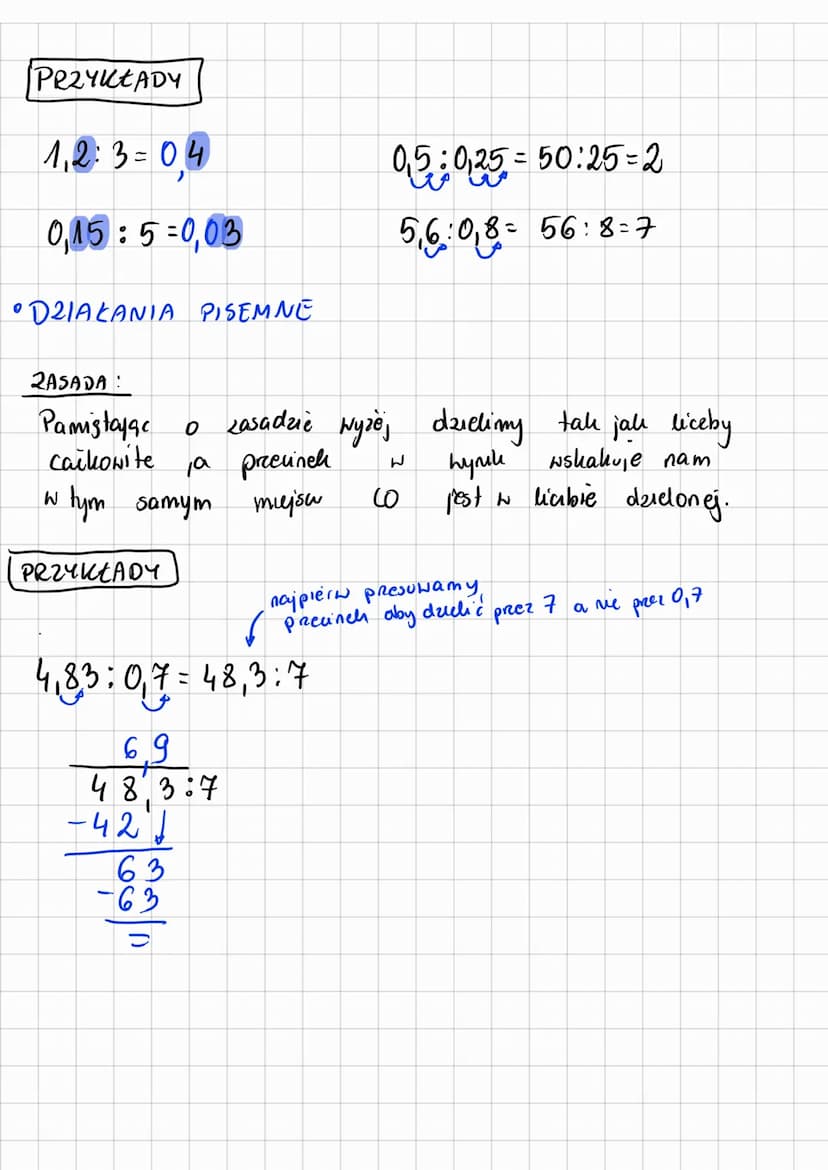 PRZYKŁADY
1,2 : 3 = 0,4
0,5 : 0,25 = 50 : 25 = 2
0,15 : 5 = 0,03
5,6 : 0,8 = 56 : 8 = 7
• DZIAŁANIA PISEMNE
ZASADA :
Pamiętając o zasadzie wyżej dzielimy tak jak liczby
całkowite , a przecinek w wyniku wskakuje nam
w tym samym miejscu co jest w liczbie dzielonej.
PRZYKŁADY
najpierw przesuwamy
przecinek aby dzielić przez 7 a nie przez 0,7
4,83 : 0,7 = 48,3 : 7
6,9
48,3 : 7
-42 ↓
63
-63
=